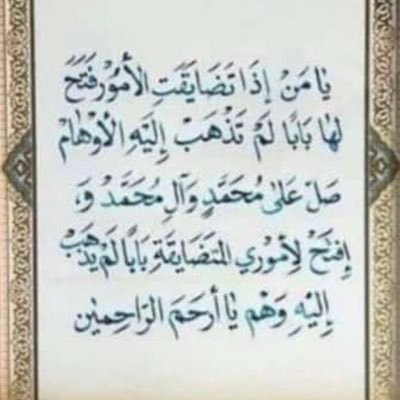 يٰا مَنْ إِذَا تَضَايَقَتِ الأُمُوْرُ فَتَحَ
لَهٰا بَابًا لَمْ تَذْهَبْ إِلَيْهِ الأَوْهٰامُ
صَلِّ عَلىٰ مُحَمَّدٍ وَآلِ مُحَمَّدْ وَ،
إِفْتَحْ لِأُمُوْرِي المُتَضَايِقَةِ بَابًا لَمْ يَذْهَبْ
إِلَيْهِ وَهْم يٰا أَرحَمَ الرَّاحِمِيْن